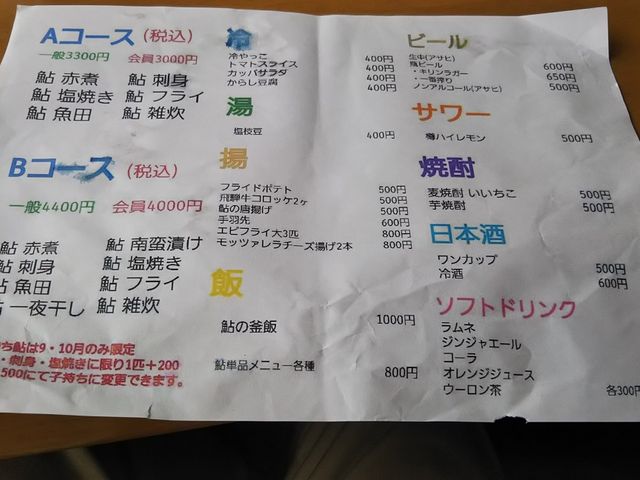 Aコース (税込)
一般3300円 会員3000円
鮎 赤煮 鮎 刺身
鮎 塩焼き 鮎 フライ
鮎 魚田 鮎 雑炊
Bコース (税込)
一般4400円 会員4000円
鮎 赤煮 鮎 南蛮漬け
鮎 刺身 鮎 塩焼き
鮎 魚田 鮎 フライ
鮎 一夜干し 鮎 雑炊
ち鮎は9・10月のみ限定
・刺身・塩焼きに限り1匹+200
500にて子持ちに変更できます。
冷
冷やっこ 400円
トマトスライス 400円
カッパサラダ 400円
からし豆腐 400円
湯
塩枝豆 400円
揚
フライドポテト 500円
飛騨牛コロッケ2ヶ 500円
鮎の唐揚げ 500円
手羽先 600円
エビフライ大3匹 800円
モッツァレラチーズ揚げ2本 800円
飯
鮎の釜飯 1000円
鮎単品メニュー各種 800円
ビール
生中(アサヒ)
瓶ビール 600円
・キリンラガー 650円
・一番搾り
ノンアルコール(アサヒ) 500円
サワー
樽ハイレモン 500円
焼酎
麦焼酎 いいちこ 500円
芋焼酎 500円
日本酒
ワンカップ 500円
冷酒 600円
ソフトドリンク
ラムネ
ジンジャエール
コーラ
オレンジジュース
ウーロン茶 各300円